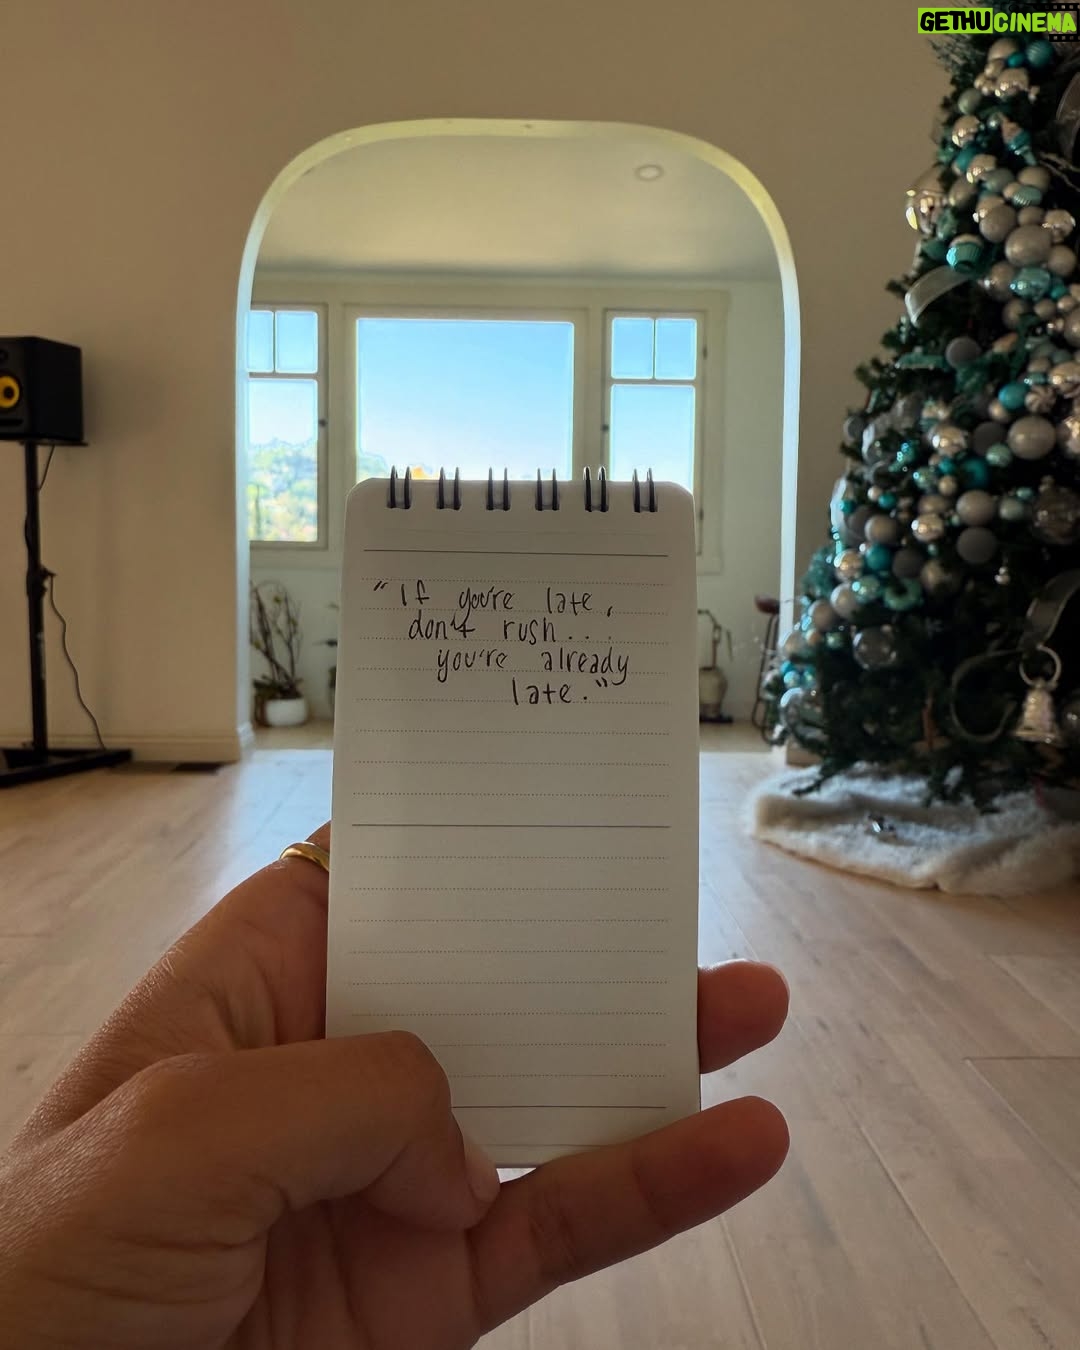 GETHUCINEMA
"If you're late,
don't rush...
you're already
late."